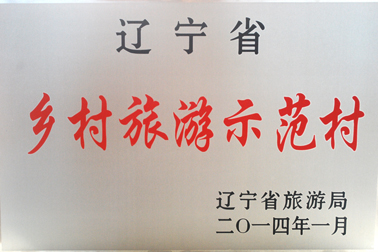 辽宁省
乡村旅游示范村
辽宁省旅游局
二〇一四年一月